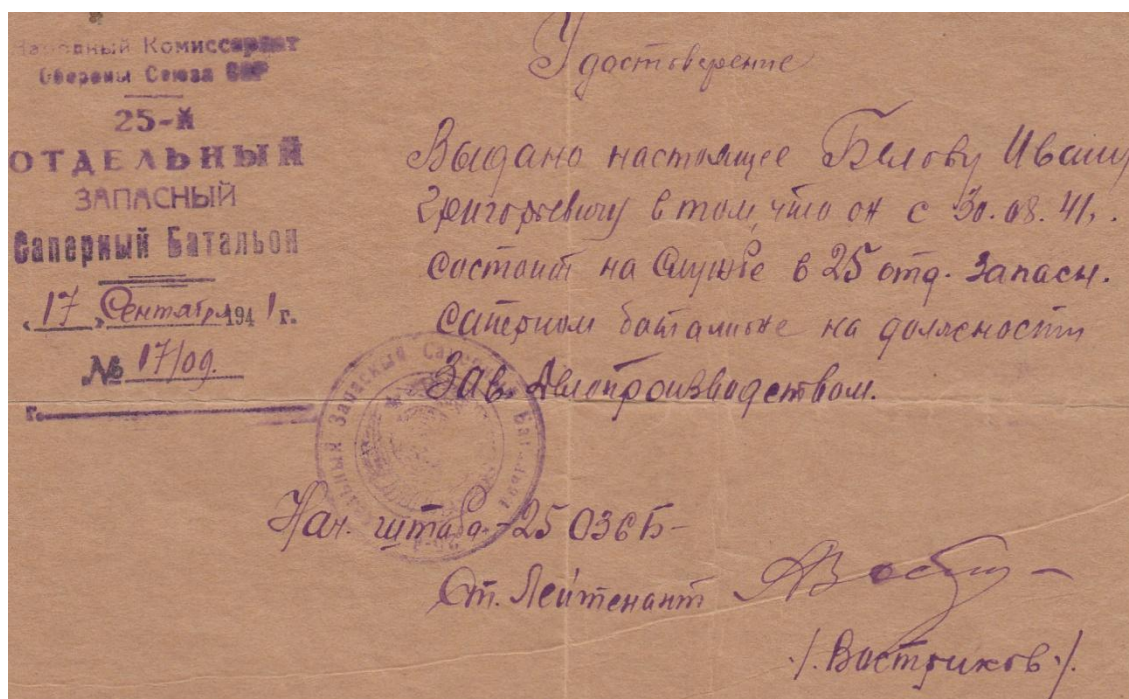 Народный Комиссариат
Обороны Союза ССР
25-й
ОТДЕЛЬНЫЙ
ЗАПАСНЫЙ
Саперный Батальон
"17" Сентября 1941 г.
№ 17/09.
г.
Удостоверение
Выдано настоящее Белову Ивану
Григорьевичу в том, что он с 30.08.41г.
состоит на службе в 25 отд. запасн.
саперном батальоне на должности
Зав. Делопроизводством.
Запасный Саперный Бат
Нач. штаба -25 ОЗСБ-
Ст. Лейтенант
/.Востриков./.